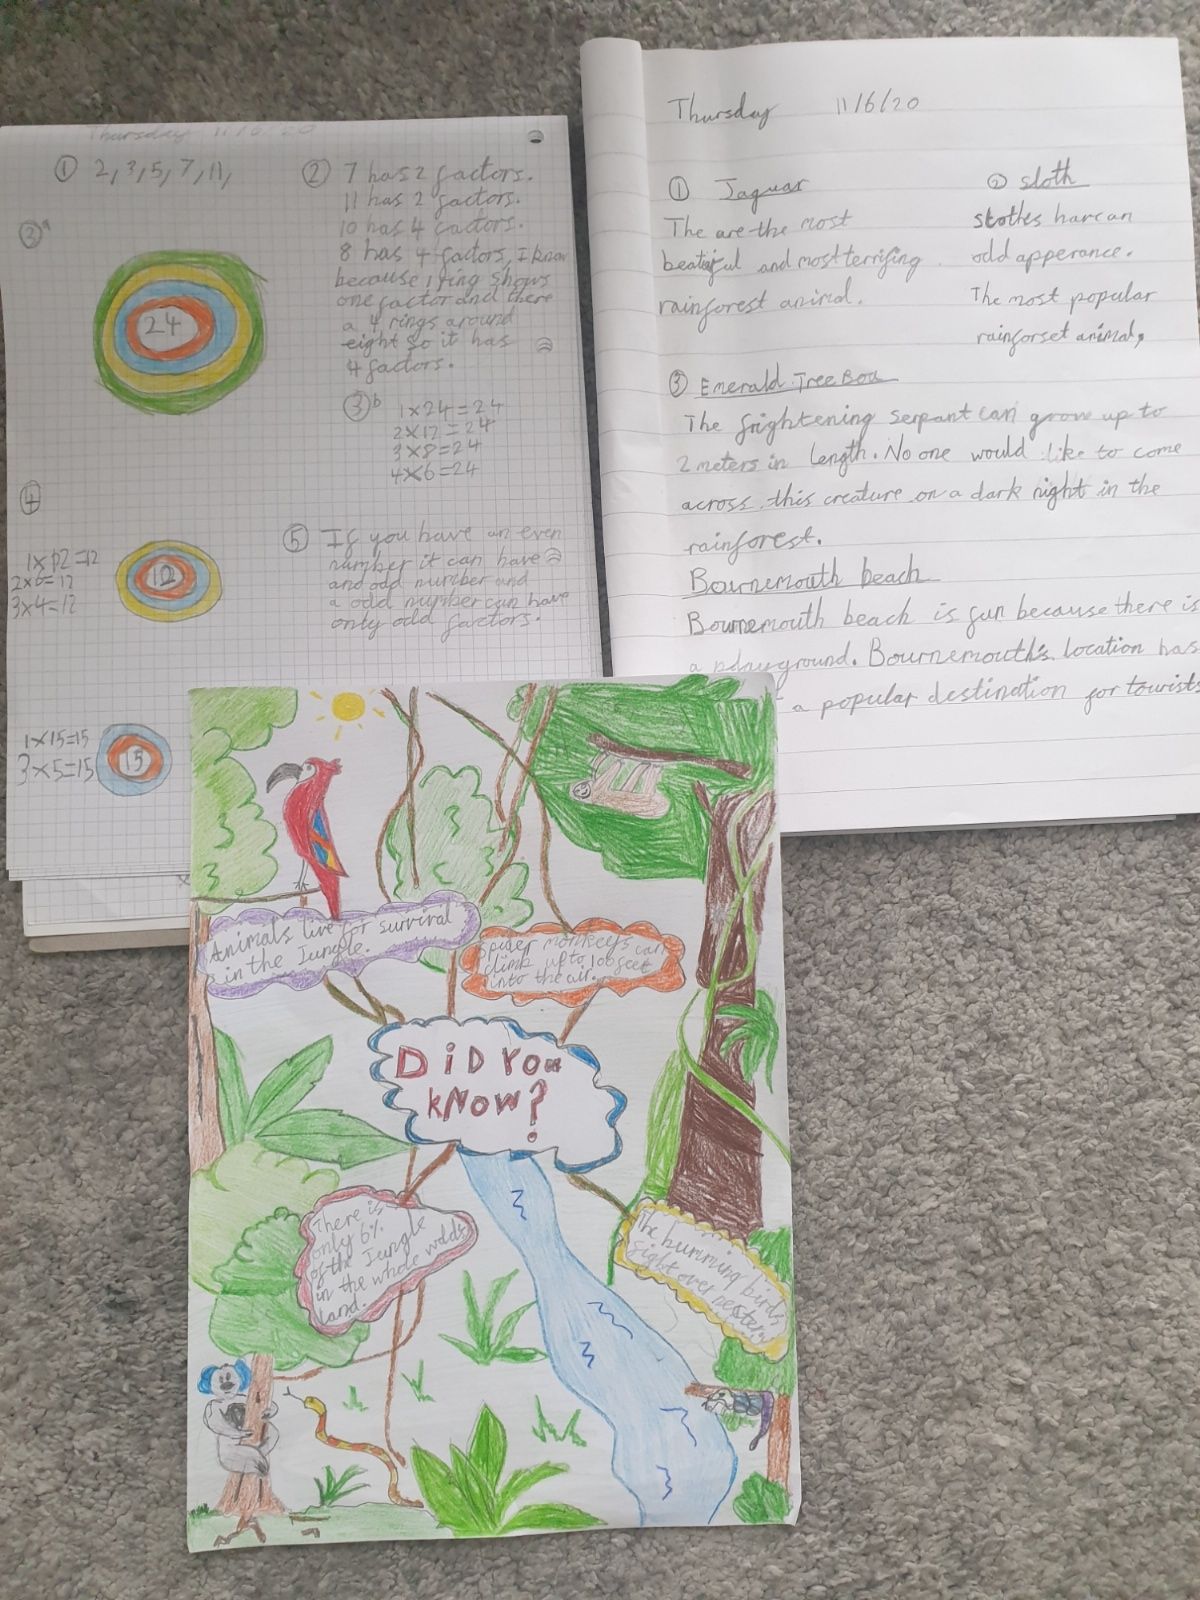 Thursday 11/6/20
① 2, 3, 5, 7, 11,
② 7 has 2 factors.
11 has 2 factors.
10 has 4 factors.
8 has 4 factors, I know
because 1 ring shows
one factor and there
a 4 rings around
eight so it has
4 factors.
③a
24
③b 1x24=24
2x12=24
3x8=24
4x6=24
④
1x12=12
2x6=12
3x4=12
12
1x15=15
3x5=15
15
⑤ If you have an even
number it can have
and odd number and
a odd number can have
only odd factors.
Thursday 11/6/20
① Jaguar
The are the most
and most terrifing
rainforest animal.
② sloth
slothes harcan
odd apperance.
The most popular
rainforset animal,
③ Emerald Tree Boa
The frightening serpant can grow up to
2 meters in length. No one would like to come
across this creature on a dark night in the
rainforest.
Bournemouth beach
Bournemouth beach is fun because there is
a playground. Bournemouth's location has
a popular destination for tourists
Animals live for survival
in the Jungle.
Spider monkeys can
climb up to 100 feet
into the air.
DiD You
kNow?
There is
only 6%
of the Jungle
in the whole
land.
The humming birds
fight over